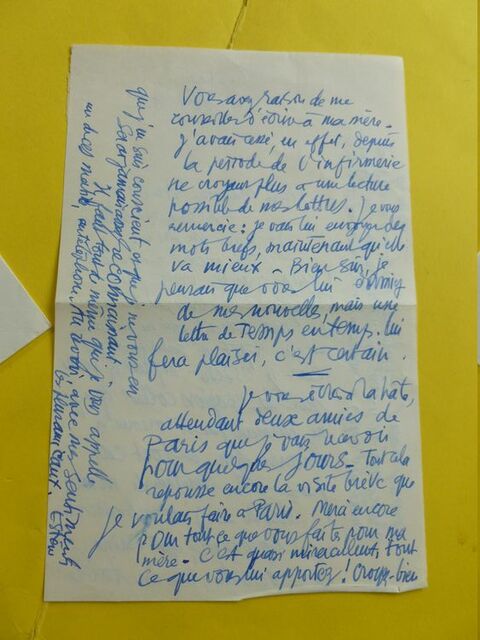 Vous avez raison de me
conseiller d'écrire à ma mère.
J'avais cessé, en effet, depuis
la période de l'infirmerie
ne croyant plus à une lecture
possible de mes lettres. Je vous
remercie : je vais lui envoyer des
mots brefs, maintenant qu'elle
va mieux. Bien sûr, je
pensais que vous lui donniez
de mes nouvelles, mais une
lettre de temps en temps lui
fera plaisir, c'est certain.
Je vous écris à la hâte,
attendant deux amies de
Paris que je vais recevoir
pour quelques jours. Tout cela
repousse encore la visite brève que
je voulais faire à Paris. Merci encore
pour tout ce que vous faites pour ma
mère. C'est quasi miraculeux, tout
ce que vous lui apportez ! Croyez bien
que j'en suis conscient et que je vous en
serai jamais reconnaissant
Il faut tout de même que je vous appelle
un de ces matins au téléphone. Au revoir, avec mes sentiments
les plus amicaux.